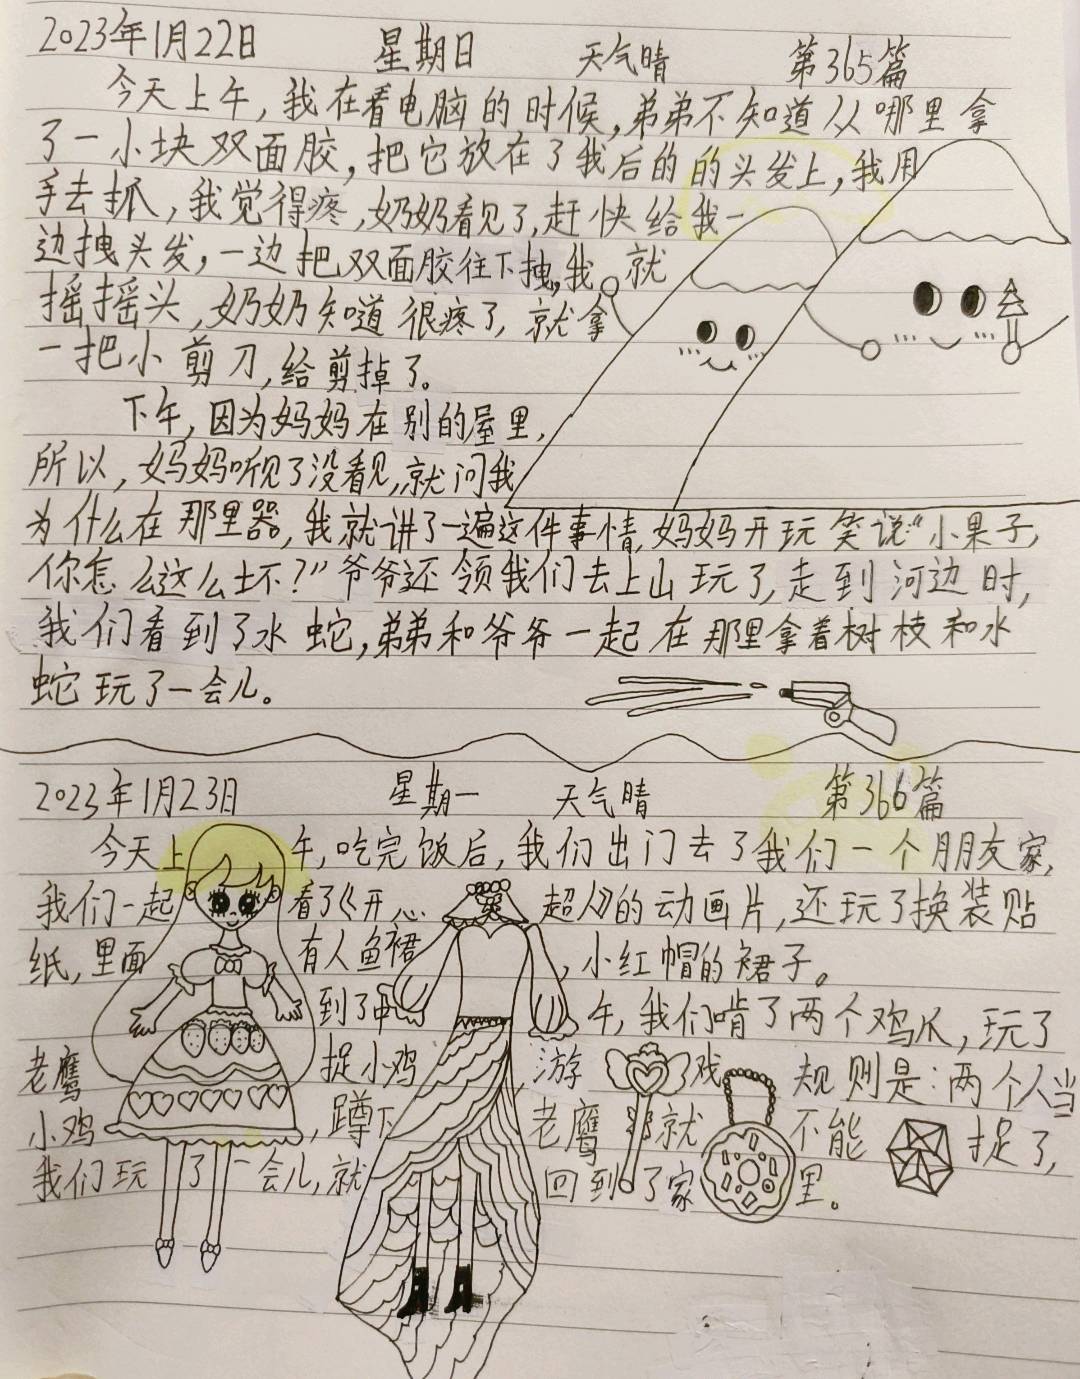 2023年1月22日 星期日 天气晴 第365篇
今天上午,我在看电脑的时候,弟弟不知道从哪里拿
了一小块双面胶,把它放在了我后的的头发上,我用
手去抓,我觉得疼,奶奶看见了,赶快给我一
边拽头发,一边把双面胶往下拽,我就
摇摇头,奶奶知道很疼了,就拿
一把小剪刀,给剪掉了。
下午,因为妈妈在别的屋里,
所以,妈妈听见了没看见,就问我
为什么在那里器,我就讲了一遍这件事情,妈妈开玩笑说“小果子,
你怎么这么坏?”爷爷还领我们去上山玩了,走到河边时,
我们看到了水蛇,弟弟和爷爷一起在那里拿着树枝和水
蛇玩了一会儿。
2023年1月23日 星期一 天气晴 第366篇
今天上午,吃完饭后,我们出门去了我们一个朋友家,
我们一起看了《开心超人》的动画片,还玩了换装贴
纸,里面有人鱼裙,小红帽的裙子。
到了中午,我们啃了两个鸡爪,玩了
老鹰捉小鸡游戏规则是:两个人当
小鸡,蹲下老鹰就不能捉了,
我们玩了一会儿,就回到了家里。